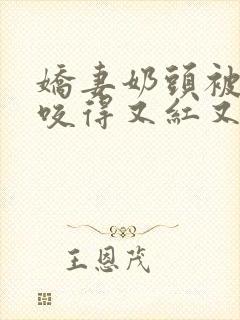 嬌妻奶頭被
咬得又紅又
王恩茂